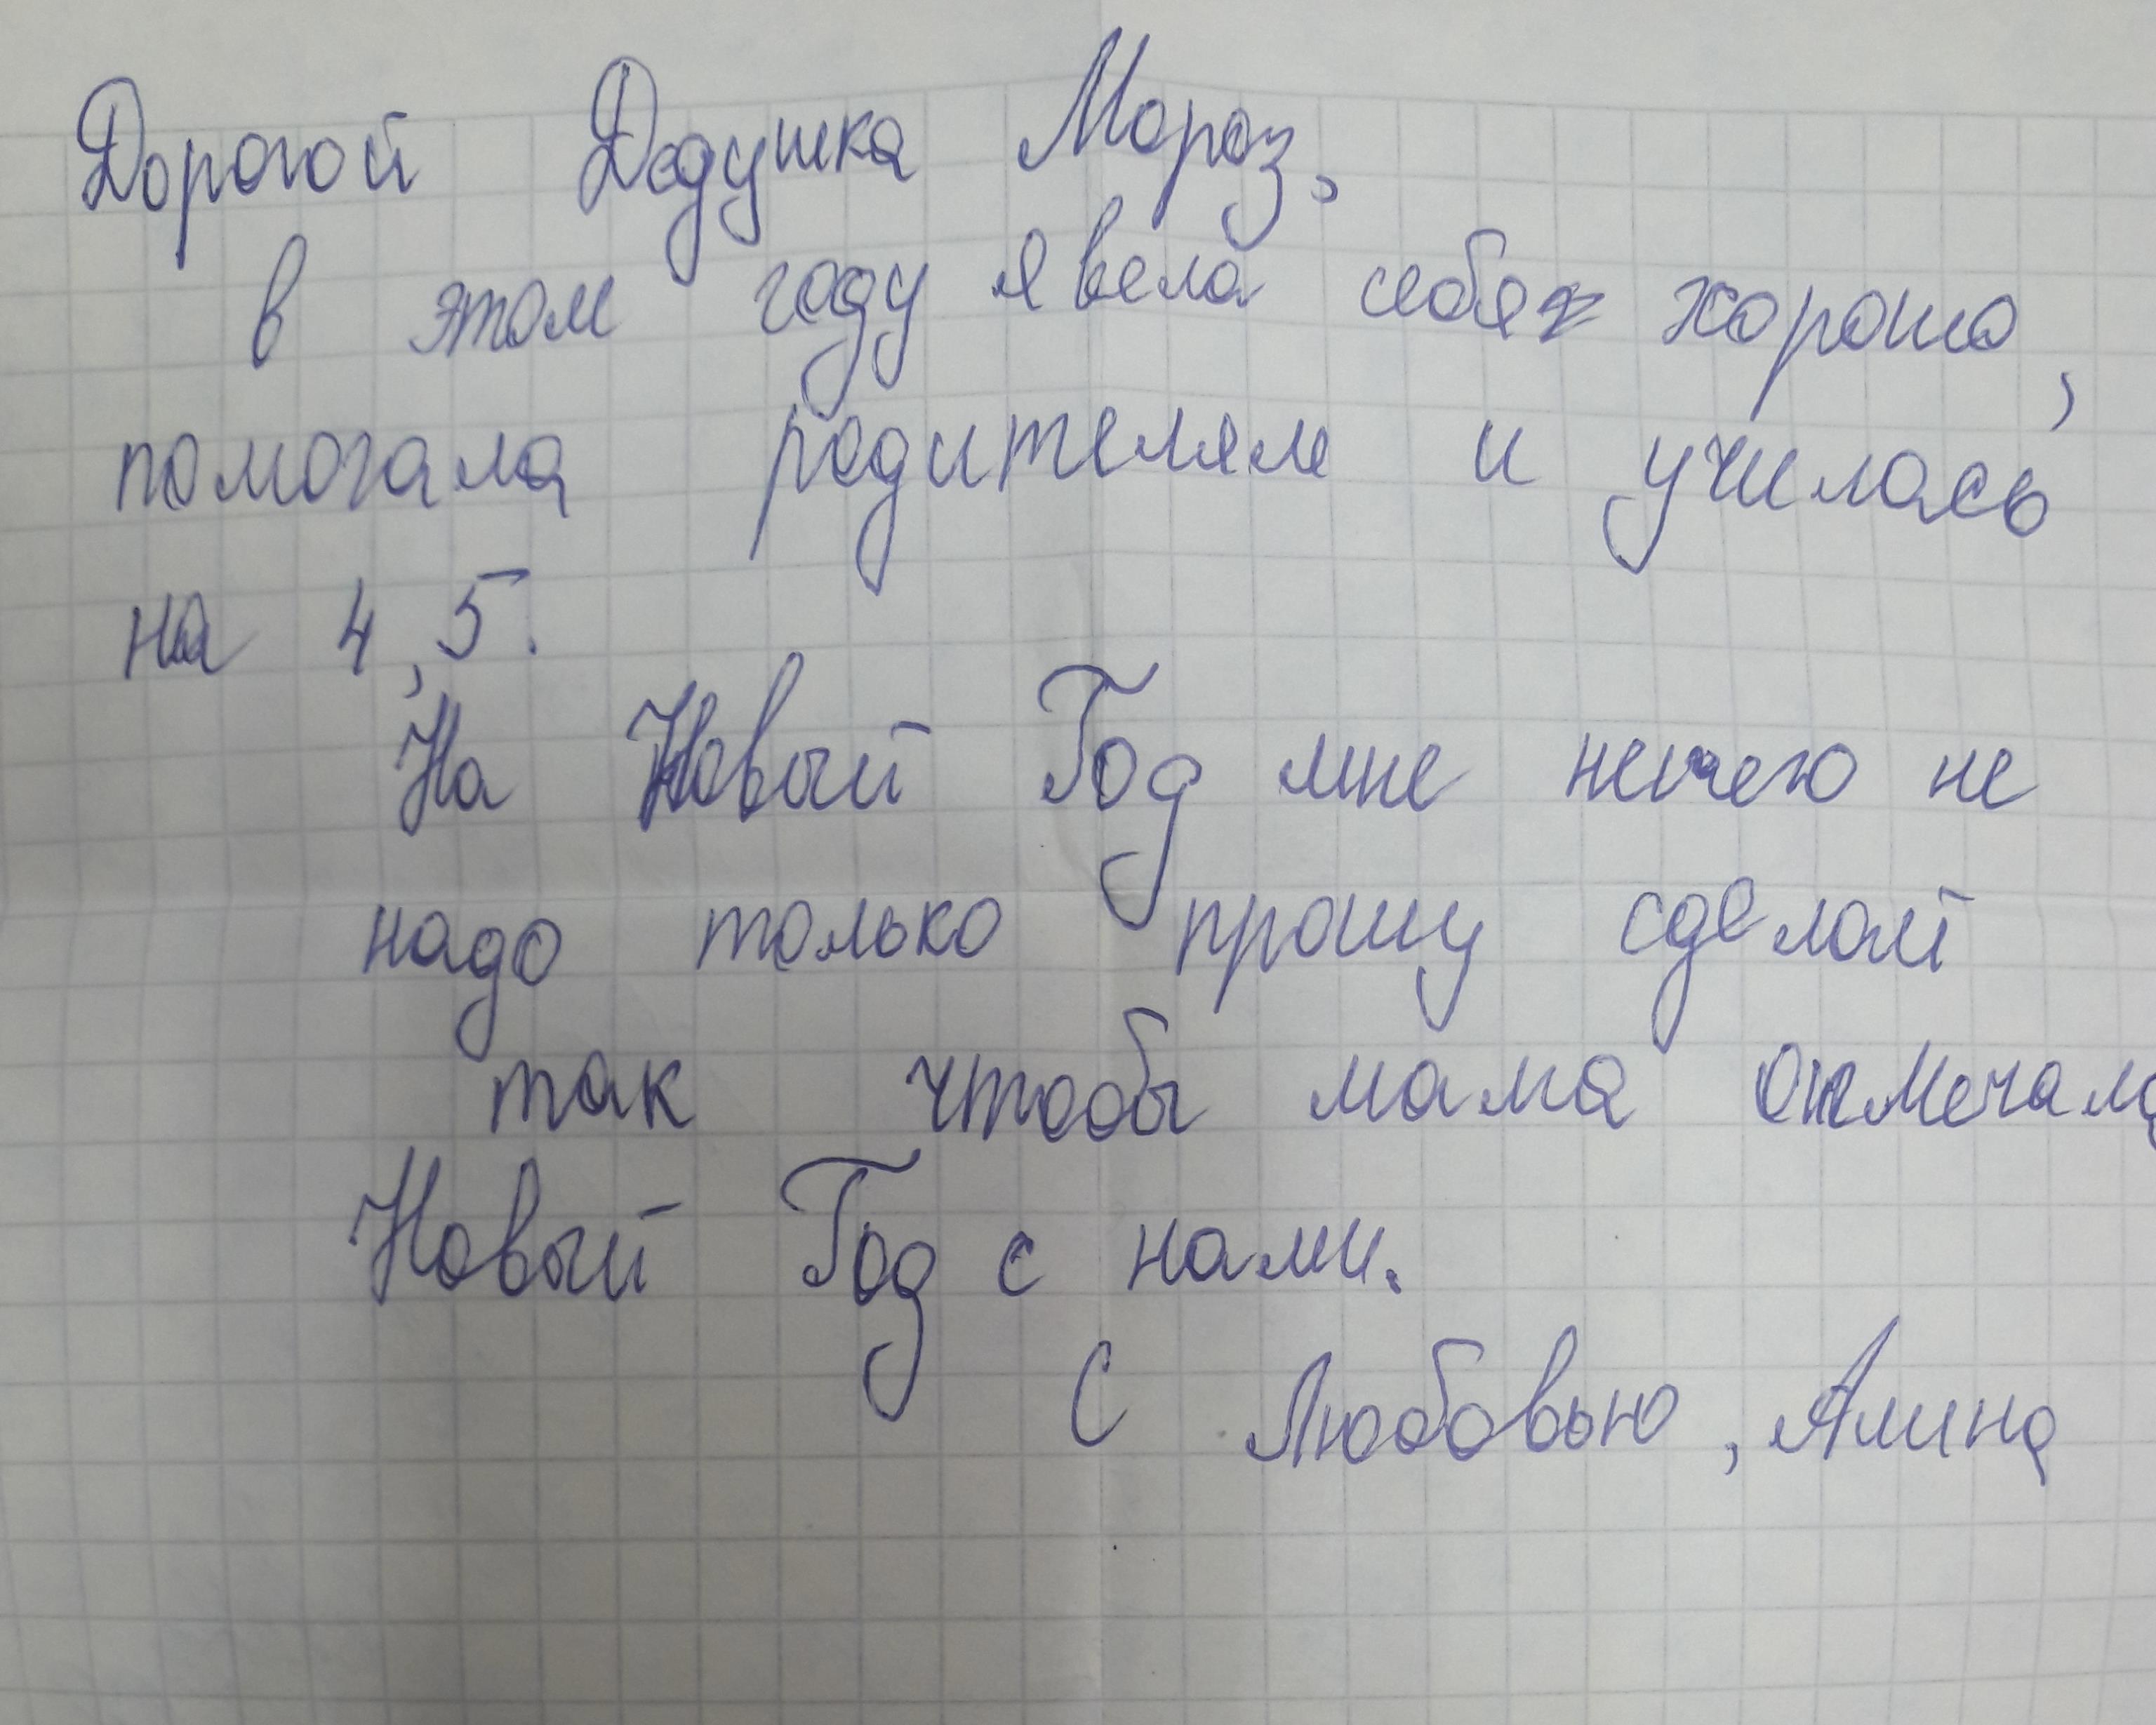 Дорогой Дедушка Мороз,
в этом году я вела себя хорошо,
помогала родителям и училась
на 4,5.
На Новый Год мне нечего не
надо только прошу сделай
так чтобы мама отмечала
Новый Год с нами.
С Любовью, Алина